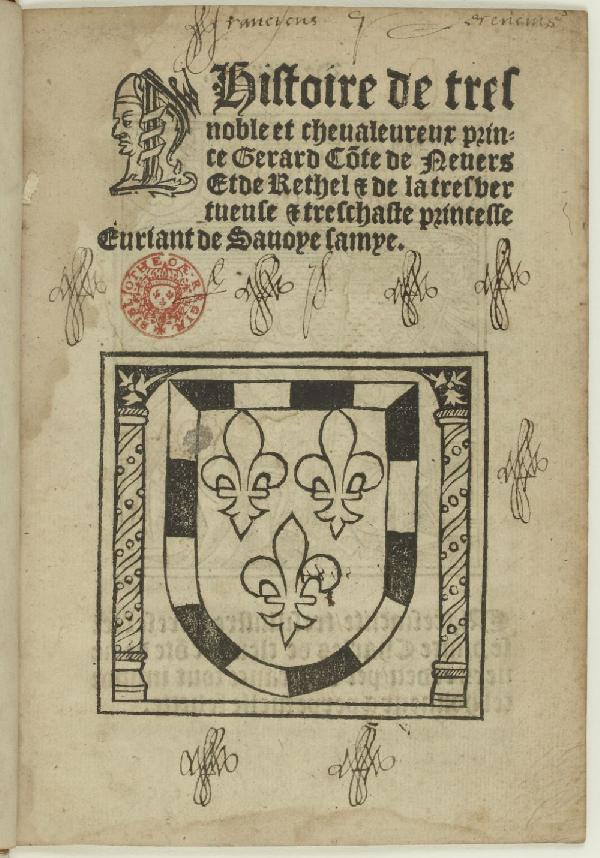 Franciscus
LHistoire de tres
noble et cheualeureux prin⸗
ce Gerard Cõte de Neuers
Et de Rethel & de la tresver
tueuse & treschaste princesse
Euriant de Sauoye samye.
BIBLIOTHECÆ REGIÆ